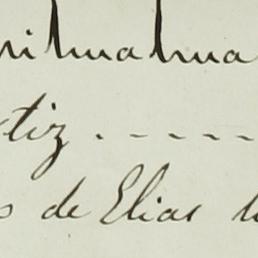 hihuahua
tiz - - - - -
s de Elias